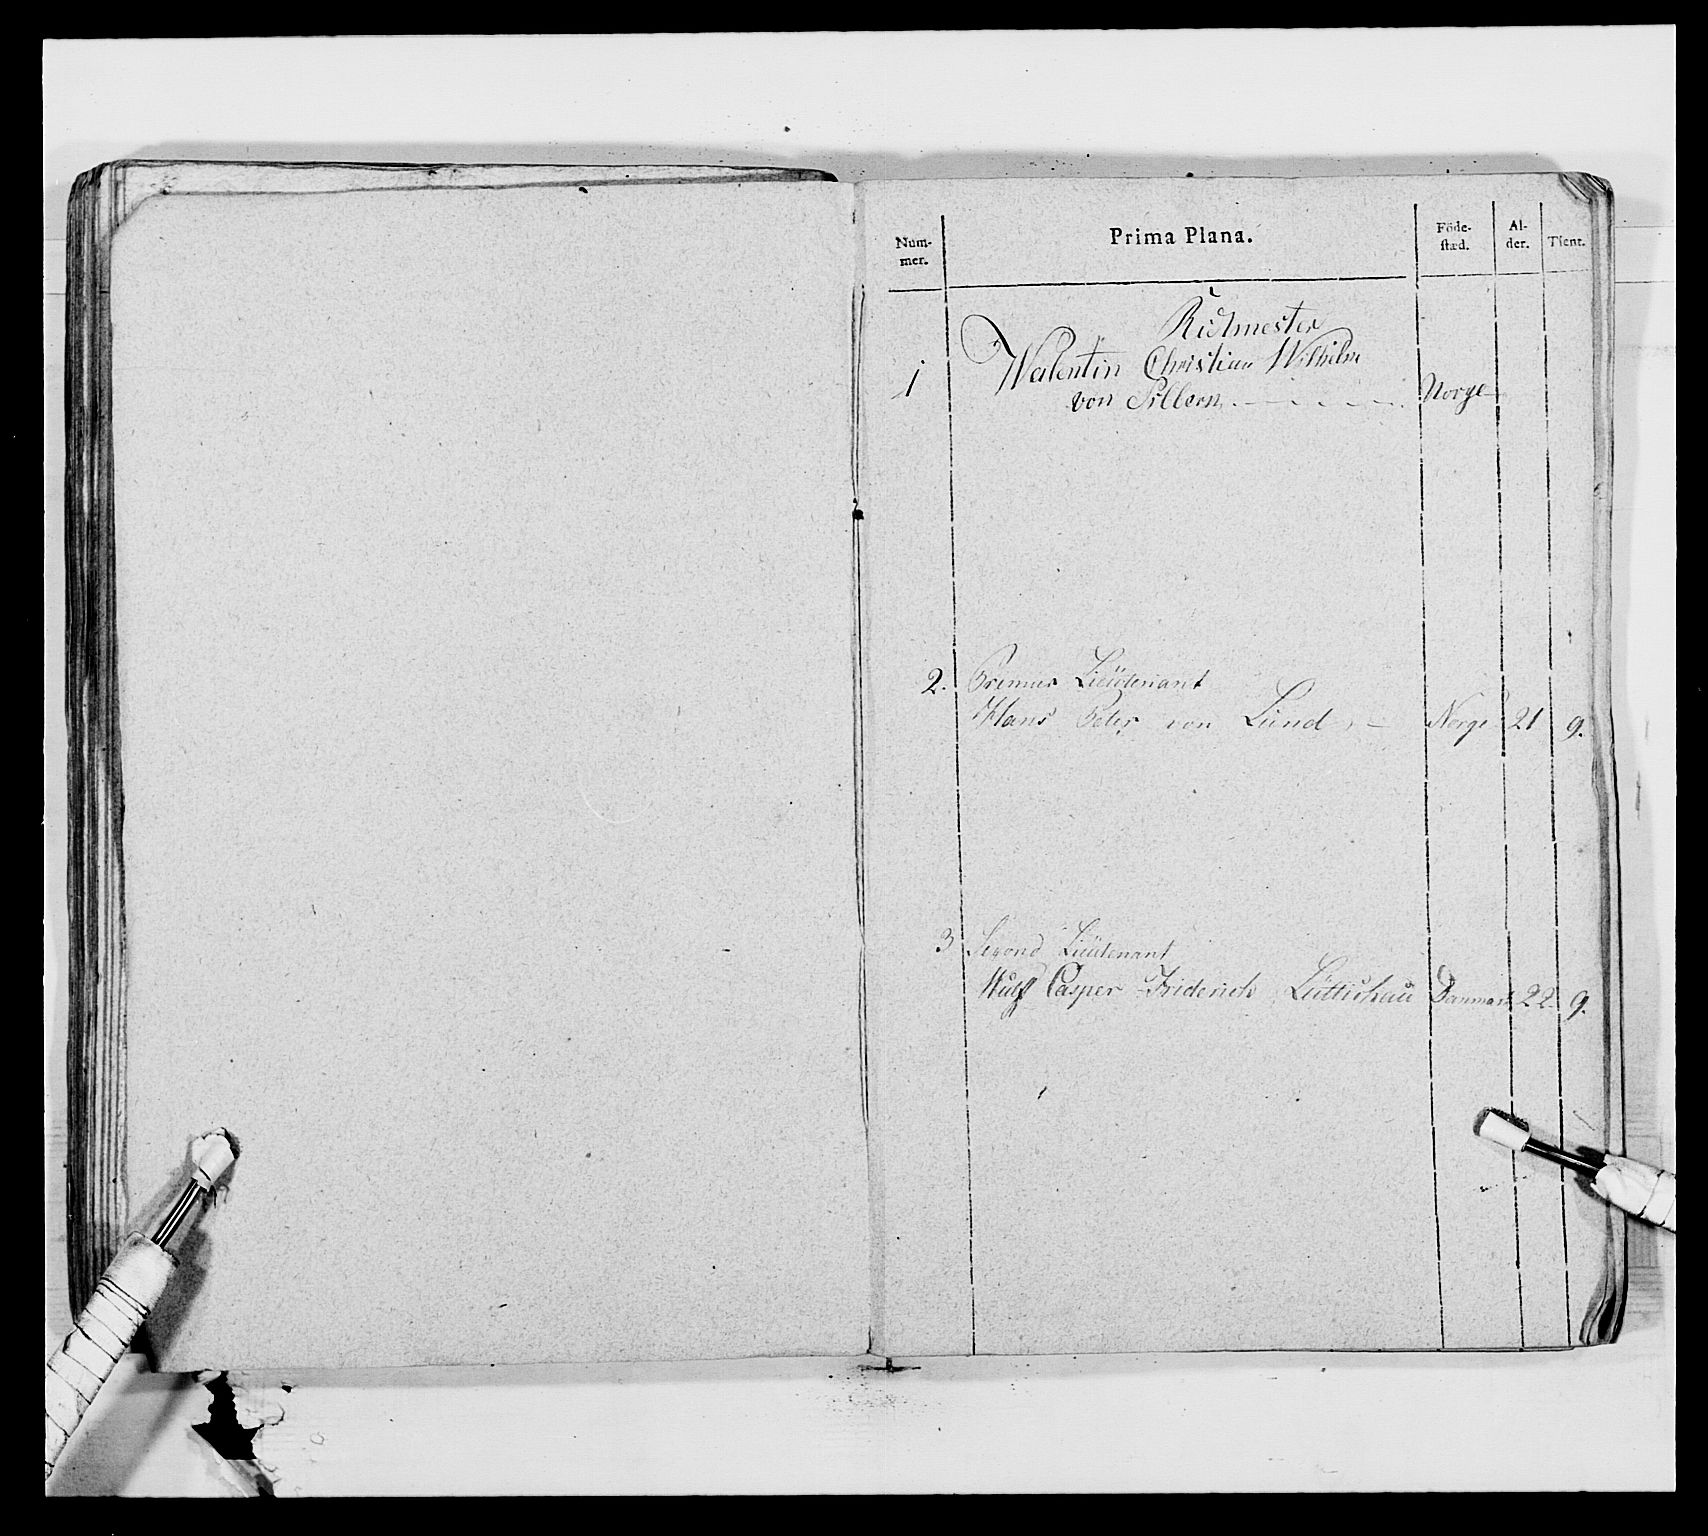 Num-
mer.
Prima Plana.
Föde-
stæd.
Al-
der.
Tient.
Ridtmester
1 Walentin Christian Wilhelm
von Sillern Norge
2. Premier Lieütenant
Hans Peter von Lund, Norge 21 9.
3 Second Lieütenant
Wulf Casper Friderich Lüttichau Danmark 22 9.